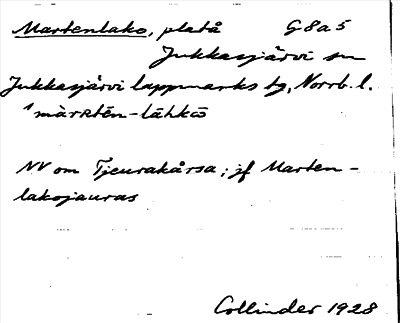 Martenlako, platå G8a5
Jukkasjärvi sn
Jukkasjärvi lappmarks tg, Norrb. l.
NV om Tjeurakårsa; jf Marten-
lakojauras
Collinder 1928